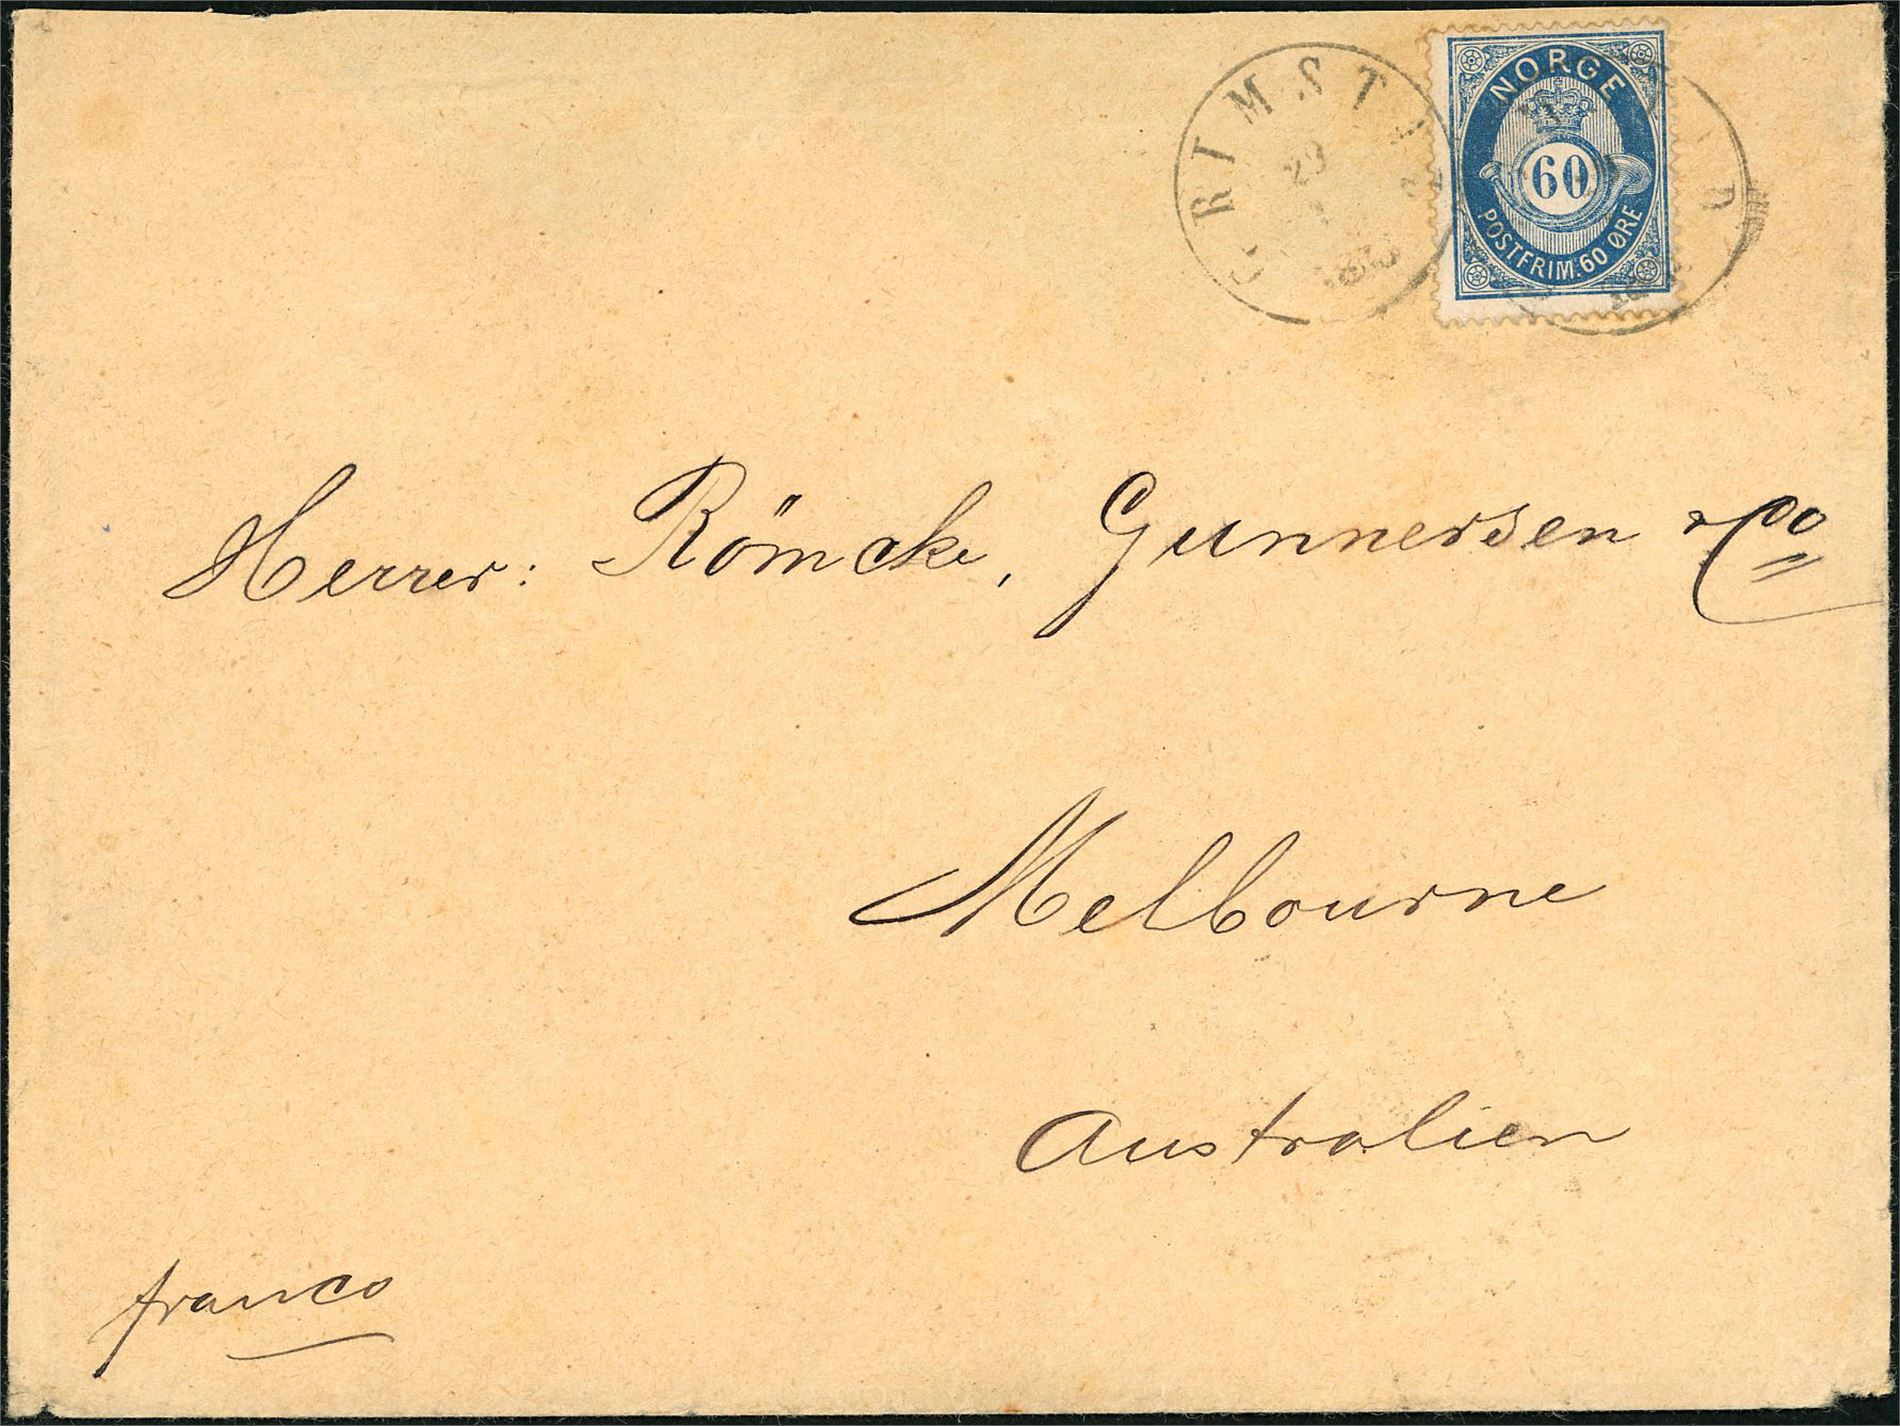 GRIMSTAD
29
NORGE
60
POSTFRIM. 60 ØRE
Herrer: Römcke, Gunnersen & Co
Melbourne
Australien
franco